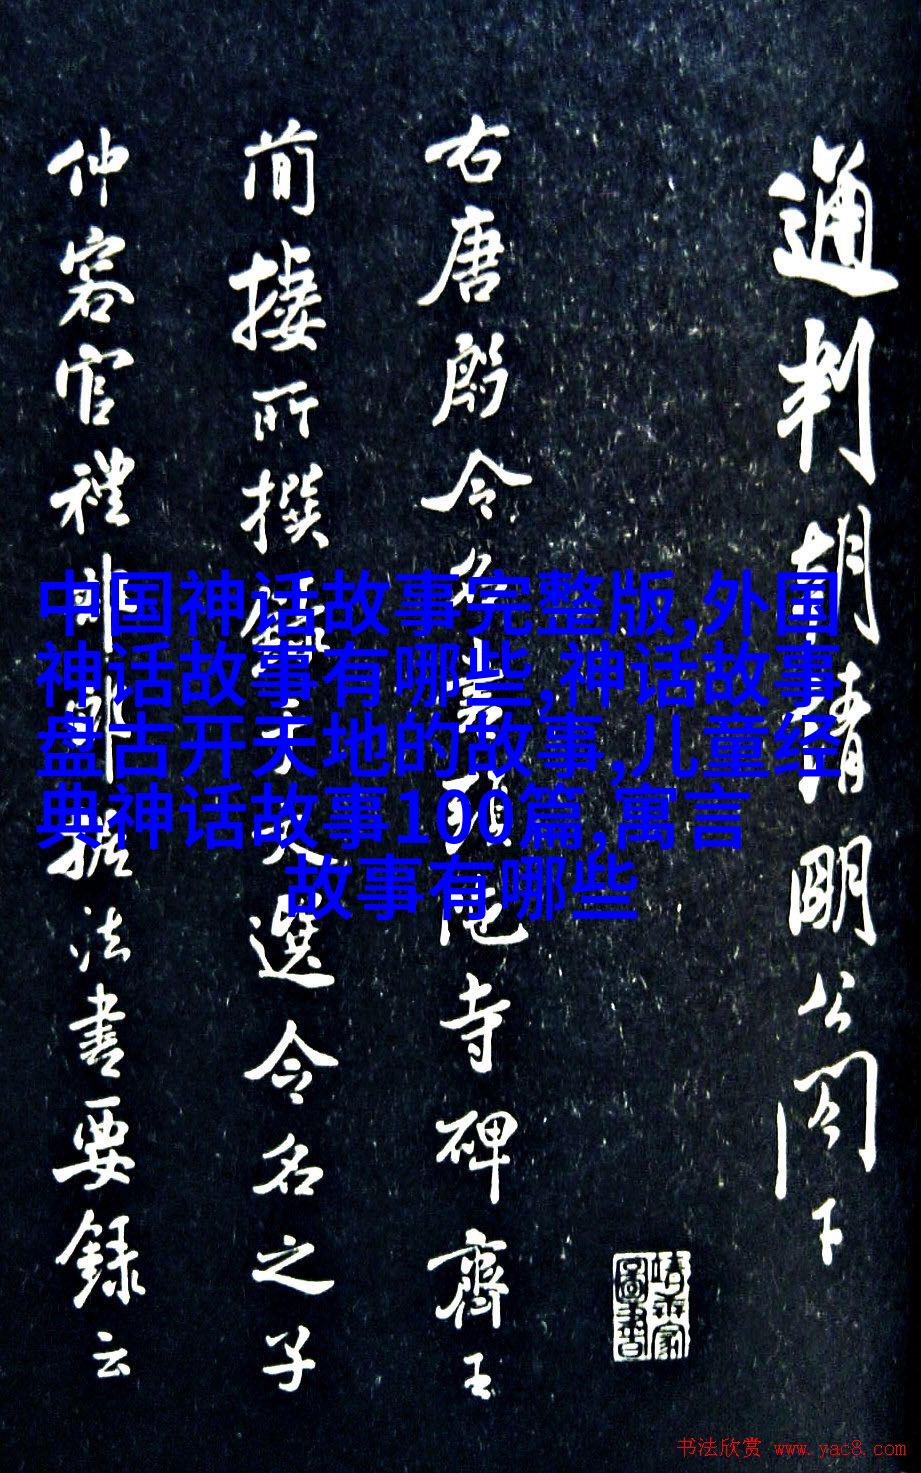 通判胡明公閣下
右唐殷令名書頭陀寺碑齊王
簡棲所撰錄于文選令名之子
仲容官禮部郎据法書要録云
中国神话故事完整版,外国
神话故事有哪些,神话故事
盘古开天地的故事,儿童经
典神话故事100篇,寓言
故事有哪些
书法欣赏 www.yac8.com